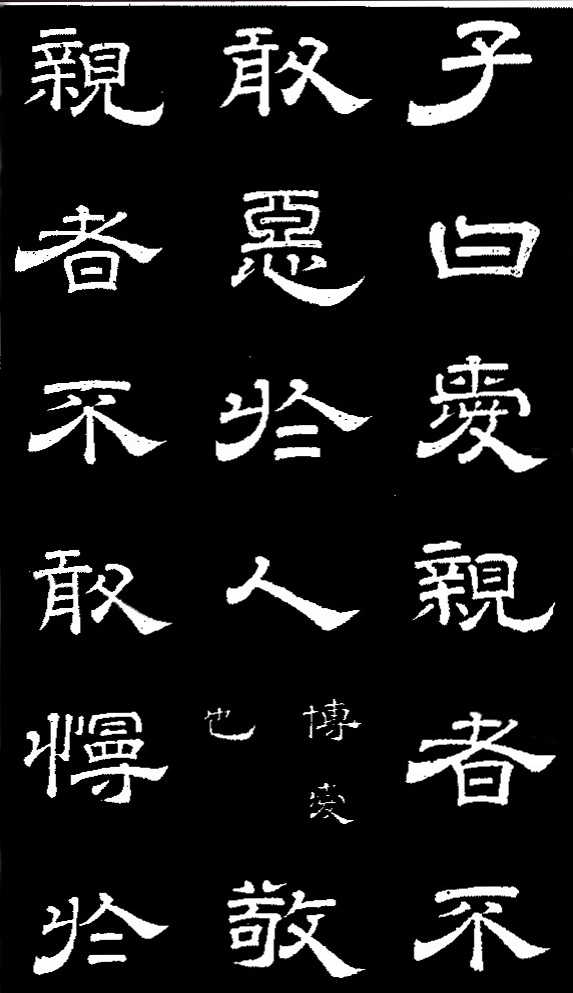 子曰愛親者不
敢惡於人博愛也敬
親者不敢慢於